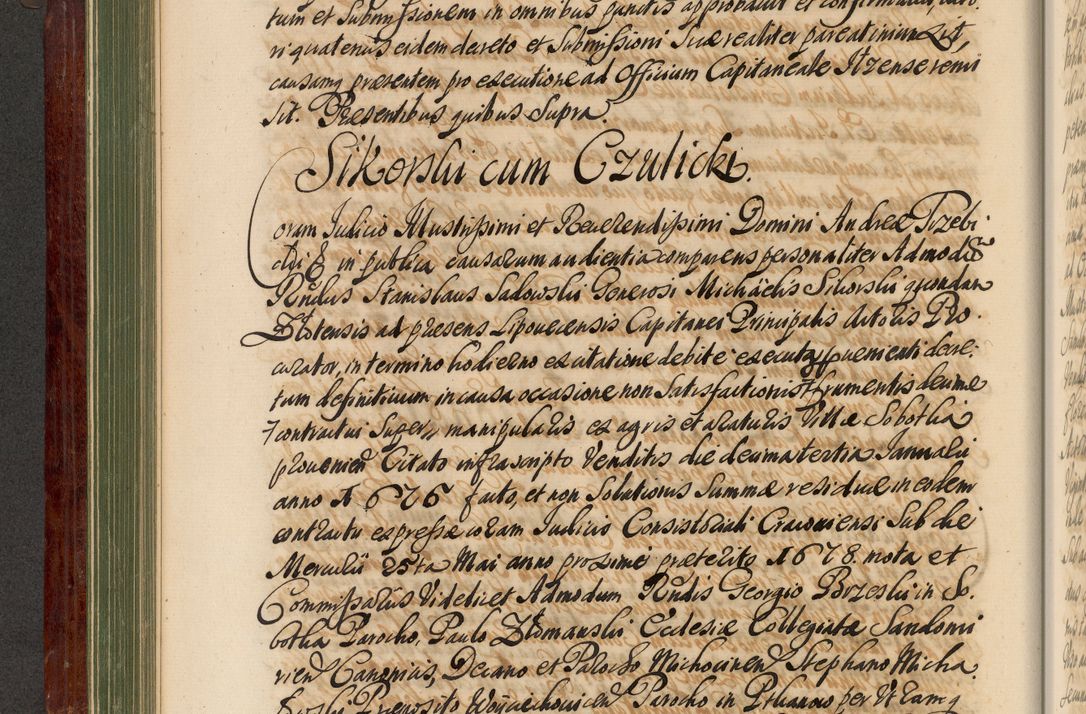 tum et Submissionem in omnibus punctis approbavit et confirmavit,
ri quatenus eidem decreto et Submissioni Suæ realiter pareat iniunxit,
causamq præsentem pro executione ad Officium Capitaneale Ilzense remi
sit. Præsentibus quibus Supra.
Sikorski cum Czulicki.
Coram Iudicio Illustrissimi et Reverendissimi Domini Andreæ Trzebi
cki & in publica causarum audientia comparens personaliter Admodũ
Rndus Stanislaus Sadowski Generosi Michaelis Sikorski quondam
Zlotensis ad præsens Lipovecensis Capitanei Principalis Actoris Pro
curator, in termino hodierno ex citatione debite executa decre
tum definitivum in causa occasione non Satisfactionis frumentis decimæ
contractui Super manipularis ex agris et araturis Villæ Sobotka
provenien Citato infrascripto Venditis die decima tertia Ianuarii
anno 1676 facto, et non Solutionis Summæ residuæ in eodem
contractu expressæ coram Iudicio Consistoriali Cracoviensi Sub die
Mercurii 25ta Mai anno proxime præterito 1678. nota et
Commissarius Videlicet Admodum Rndis Georgio Borzeski in So
botka Parocho, Paulo Ecclesiæ Collegiatæ Sandomi
rien Canonicis, Decano et Parocho Michocinen Stephano Micha
Præposito Woyciechovicen Parocho in per Utramq